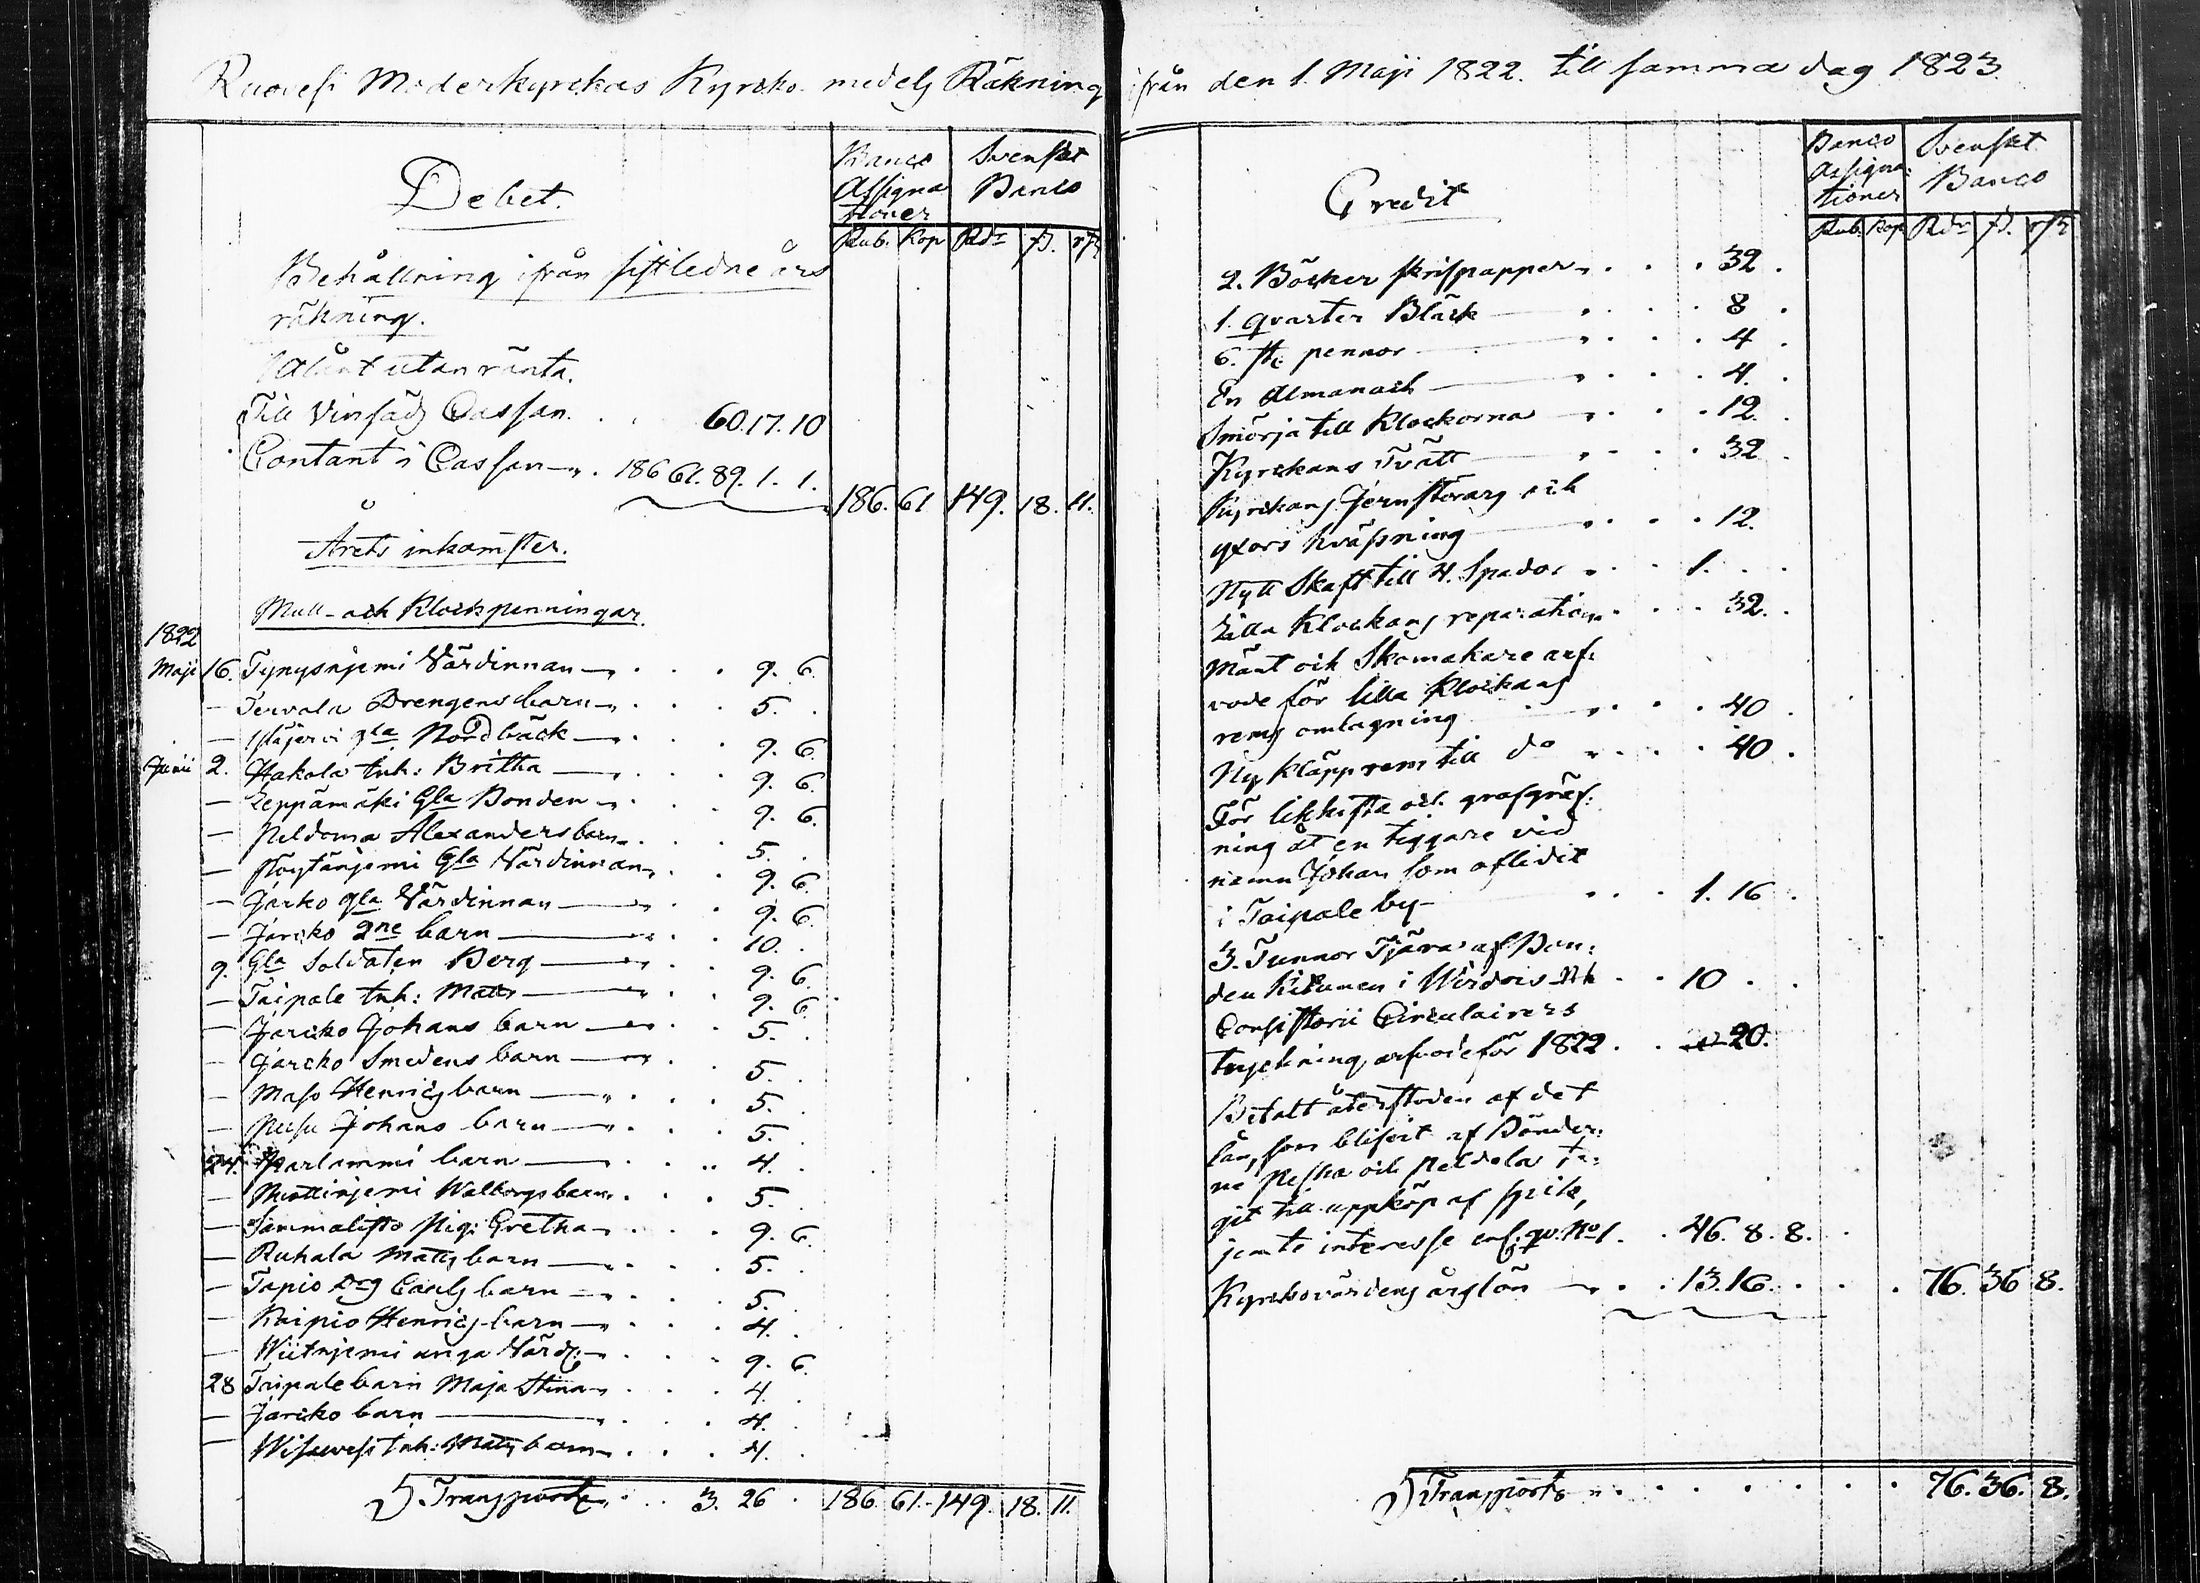 Ruovesi Moderkyrckas Kyrcko medels Räkning ifrån den 1. Maji 1822. till samma dag 1823.
Debet.
Banco Assignationer
Svenskt Banco
Rub. Kop Rdr ß. rst
Behållning ifrån sistledne års
räkning.
Utlånt utan ränta.
Till Vinsäds Cassan. . . 60.17.10
Contant i Cassan „. 186 61. 89. 1. 1. 186. 61 149. 18. 11.
Årets inkomster.
Mull- och Klockpenningar.
1822
Maji 16. Tynysnjemi Värdinnan . . . 9. 6.
— Tervala Drengens barn . . . 5. .
— gla Nordbäck . . . 9. 6.
Junii 2. Hakala Inh: Britha . . . 9. 6.
— Leppämäki Gla Bonden . . . 9. 6.
— Alexanders barn . . . 5. .
— Gla Värdinnan . . 9. 6.
— Jäcko gla Värdinnan . . 9. 6.
— Järcko 2ne barn . . 10. .
9. Gla Soldaten Berg . . 9. 6.
— Taipale Inh: Matts . . 9. 6.
— Järicko Johans barn . . 5. .
— Järicko Smedens barn . . 5. .
— Maso Henrics barn . . . 5. .
— Johans barn . . . 5. .
24. Parlammi barn . . . 4. .
— Walborgs barn . . . 5. .
— Pig: Gretha . . . 9. 6.
— Ruhala Matts barn . . . 5. .
— Tapio Drg Carls barn . . . 5. .
— Raipio Henrics barn . . . 4. .
— Wiitnjemi unga Värd: . . . 9. 6.
28 Taipale barn Maja Stina . . . 4. .
— Järicko barn . . . 4. .
— Inh: Matts barn . . . 4. .
Transporte . . . 3. 26 . 186. 61. 149. 18. 11.
Credit
Banco Assignationer
Svenskt Banco
Rub. Kop Rdr ß. rst
2. Böcker skrifpapper . . . 32 .
1. quarter Bläck . . . 8 .
6. st: pennor . . . 4 .
En Almanach . . . 4. .
Smörja till Klockorna . . . 12. .
Kyrckans Tvätt . . . 32 .
Kyrckans Jernstörars och
yxors hväsning . . . 12.
Nytt Skaft till 4. Spador . . 1. . .
Lilla Klockans reparation . . . 32. .
Mänt och Skomakare arf:
vode för lilla Klockans
rems omlagning . . . 40 .
Ny Kläpprem till do . . . 40 .
För likkista och grafgräf:
ning åt en tiggare vid
namn Johan som aflidit
i Taipale by . . . 1. 16 .
3. Tunnor Tjära af Bon:
den i Wirdois . . 10 . .
Consistorii Circulairers
tryckning arfvode för 1822 . . 20.
Betalt återstoden af det
lån, som blifvit af Bönder:
ne och ta:
git till uppköp af spik,
jemte interesse enl. qv. No 1. . 46. 8. 8. .
Kyrckovärdens årslön . . 13. 16. . . . 76. 36 8.
Transporte . . . . . . . 76. 36. 8.